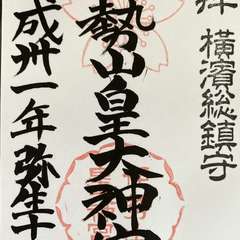 拝 横濱総鎮守
勢山皇大神宮
成卅一年弥生十